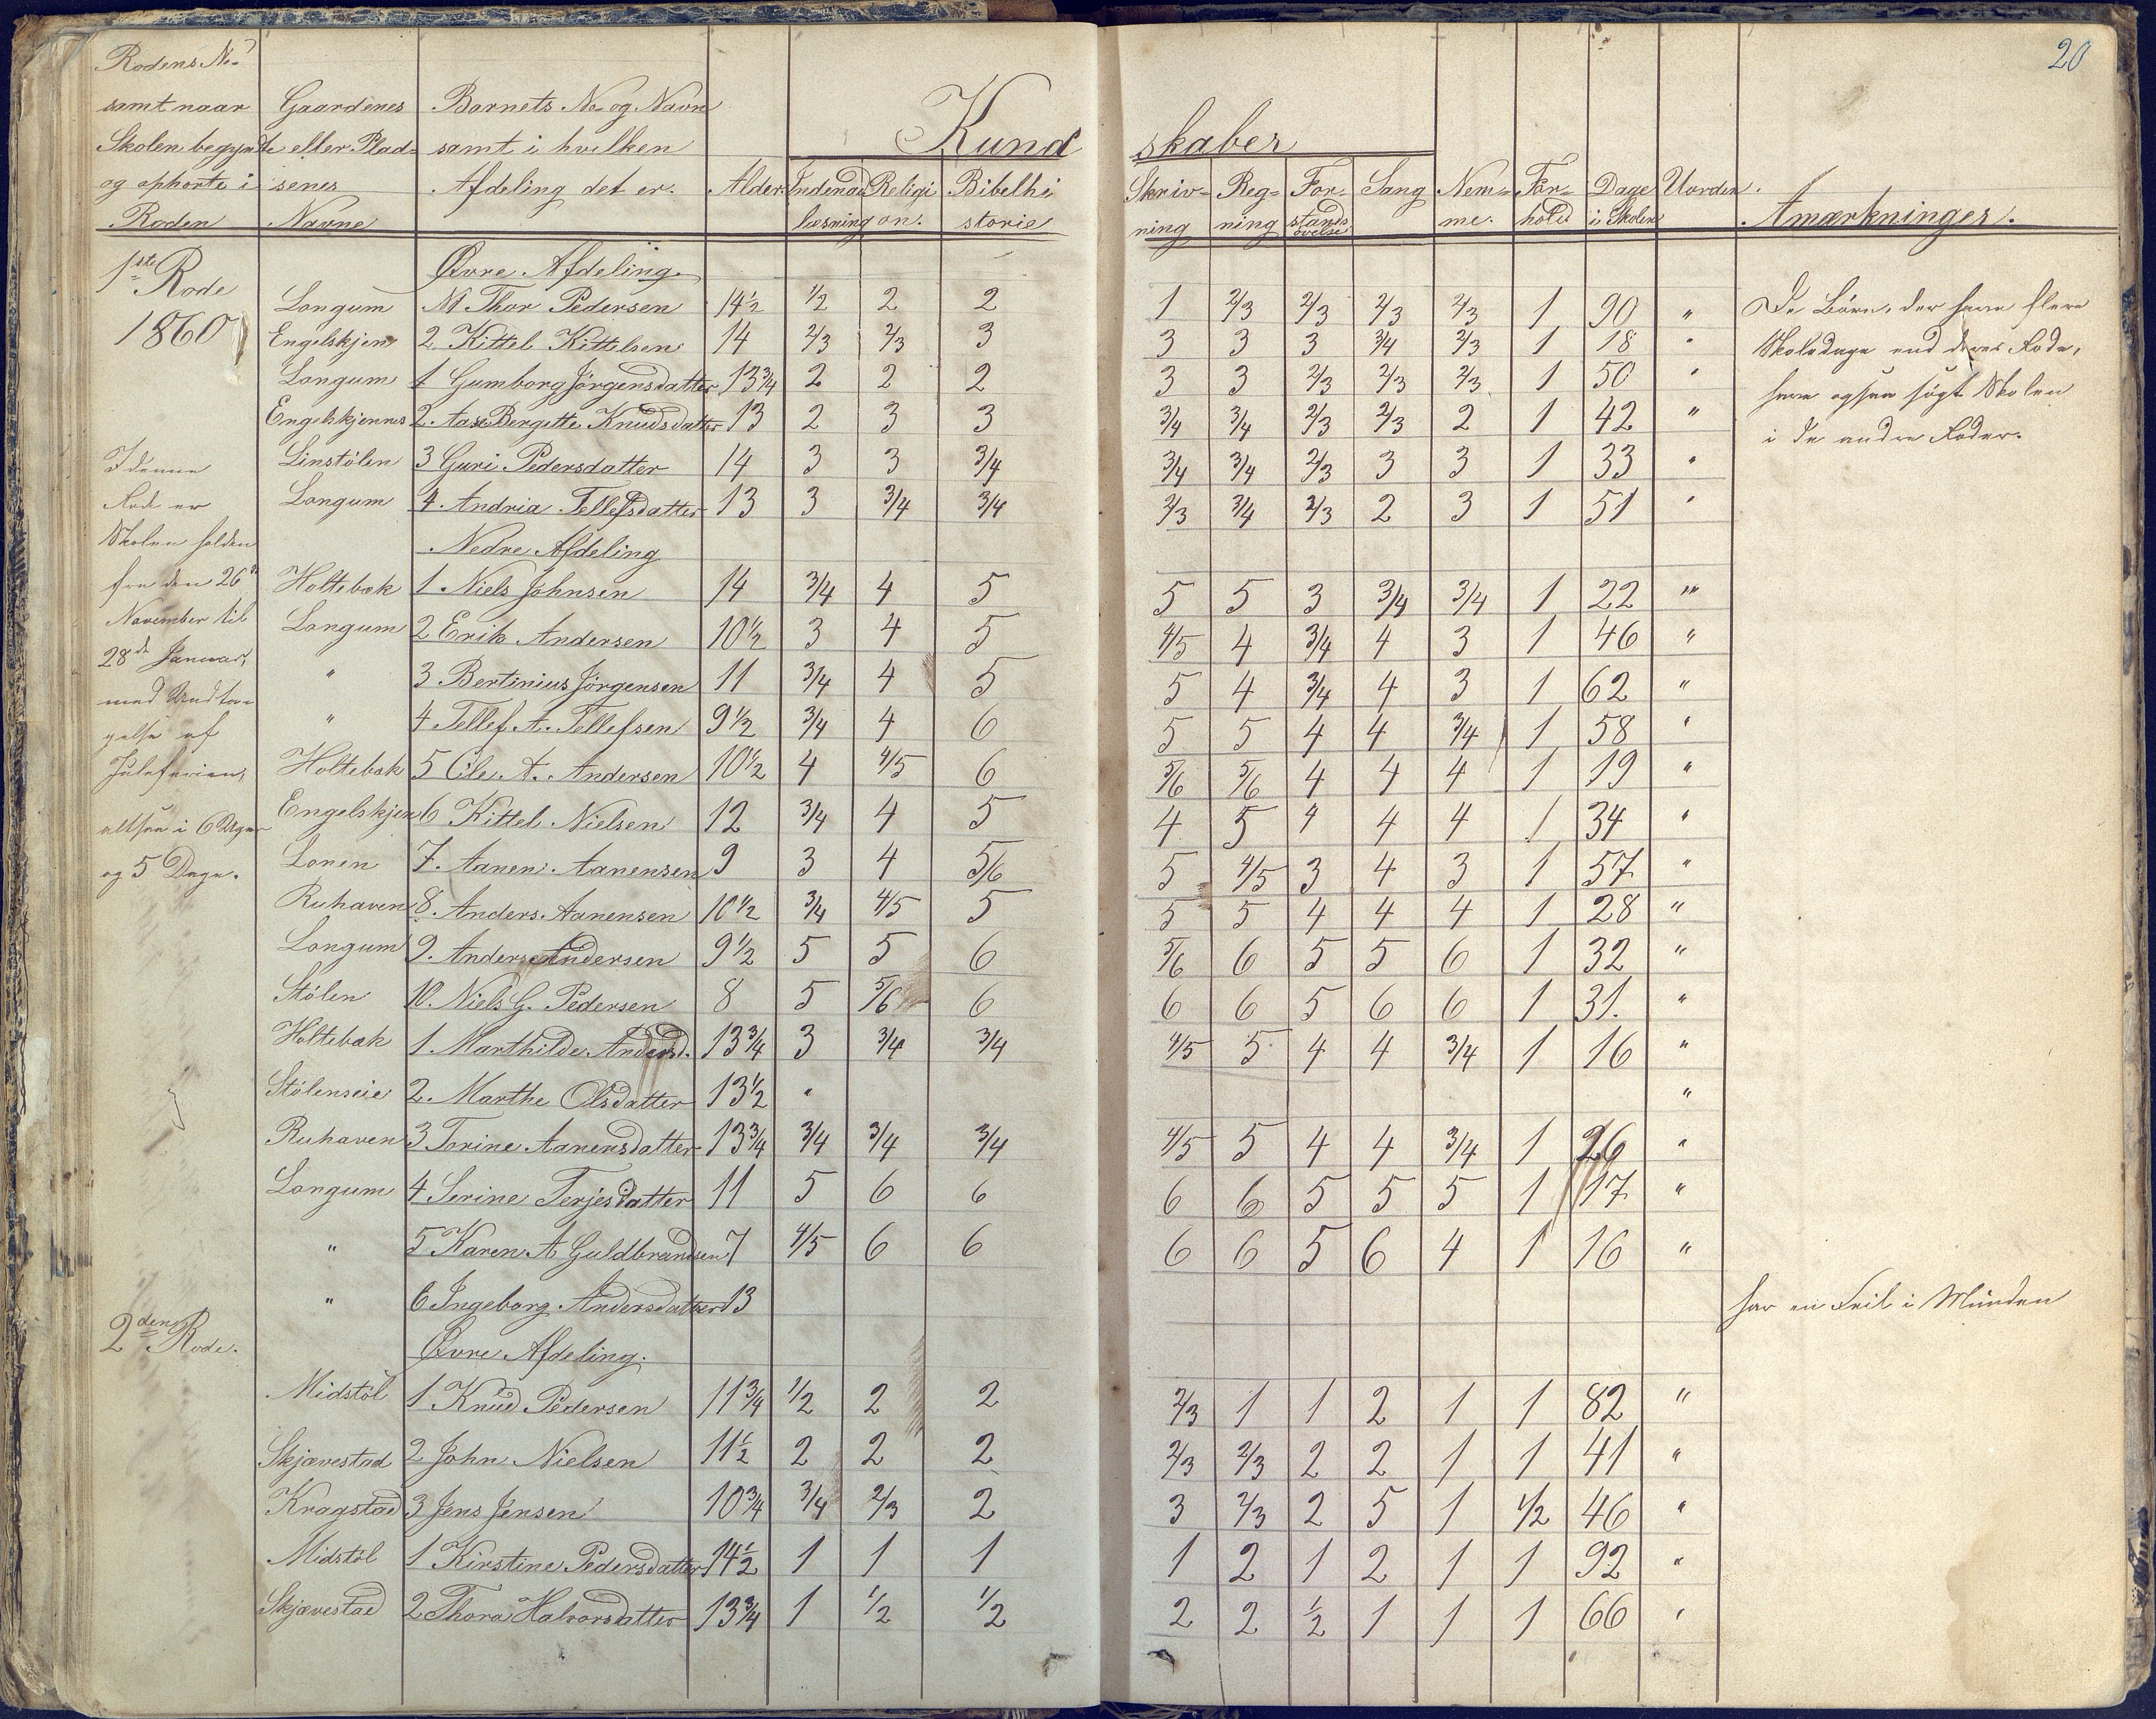 20
Rodens No
samt naar Gaardenes Barnets No og Navn
Skolen begyndte eller Plad- samt i hvilken Kund skaber
og ophorte i senes Afdeling det er. Alder Indenad Religi Bibelhi Skriv- Reg- For- Sang Nem- For- Dage Uorden.
Roden Navne læsning on. storie ning ning stands me. hold i Skolen Amærkninger.
øvelse
1ste Rode Øvre Afdeling.
1860
Longum No1 Thor Pedersen 14½ ½ 2 2 1 2/3 2/3 2/3 2/3 1 90 "
Engelskjen 2 Kittel Kittelsen 14 2/3 2/3 3 3 3 3 3/4 2/3 1 18 "
Longum 1 Gumborg Jörgensdatter 13¾ 2 2 2 3 3 2/3 2/3 2/3 1 50 "
Engelskjennes 2. Aase Bergitte Knudsdatter 13 2 3 3 3/4 3/4 2/3 2/3 2 1 42 "
Linstölen 3 Guri Pedersdatter 14 3 3 3/4 3/4 3/4 2/3 3 3 1 33 "
Longum 4. Andria Tellefsdatter 13 3 3/4 3/4 2/3 3/4 2/3 2 3 1 51 "
De Börn, der have flere
Skoledage end deres Rode,
have ogsaa sögt Skolen
i de andre Roder.
I denne
Rode er
Skolen holden
fra den 26de
November til
28de Januar,
med Undta-
gelse af
Juleferien,
altsaa i 6 Uger
og 5 Dage.
Nedre Afdeling
Holtebak 1 Niels Johnsen 14 3/4 4 5 5 5 3 3/4 3/4 1 22 "
Longum 2 Erik Andersen 10½ 3 4 5 4/5 4 3/4 4 3 1 46 "
" 3 Bertinius Jörgensen 11 3/4 4 5 5 4 3/4 4 3 1 62 "
" 4 Tellef A. Tellefsen 9½ 3/4 4 6 5 5 4 4 3/4 1 58 "
Holtebak 5 Ole A. Andersen 10½ 4 4/5 6 5/6 5/6 4 4 4 1 19 "
Engelskjen 6 Kittel Nielsen 12 3/4 4 5 4 5 4 4 4 1 34 "
Lonen 7. Aanen Aanensen 9 3 4 5/6 5 4/5 3 4 3 1 57 "
Ruhaven 8. Anders Aanensen 10½ 3/4 4/5 5 5 5 4 4 4 1 28 "
Longum 9. Anders Andersen 9½ 5 5 6 5/6 6 5 5 6 1 32 "
Stölen 10. Niels G. Pedersen 8 5 5/6 6 6 6 5 6 6 1 31. "
Holtebak 1. Marthilde Andersd. 13¾ 3 3/4 3/4 4/5 5 4 4 3/4 1 16 "
Stölenseie 2. Marthe Olsdatter 13½ " "
Ruhaven 3 Torine Aanensdatter 13¾ 3/4 3/4 3/4 4/5 5 4 4 3/4 1 26 "
Longum 4 Serine Terjesdatter 11 5 6 6 6 6 5 5 5 1 17 "
" 5 Karen A Guldbrandsen 7 4/5 6 6 6 6 5 6 4 1 16 "
" 6 Ingeborg Andersdatter 13 har en Feil i Munden
2den Rode. Øvre Afdeling.
Midstöl 1 Knud Pedersen 11¾ ½ 2 2 2/3 1 1 2 1 1 82 "
Skjævestad 2 John Nielsen 11½ 2 2 2 2/3 2/3 2 2 1 1 41 "
Kragstad 3 Jens Jensen 10¾ 3/4 2/3 2 3 2/3 2 5 1 ½ 46 "
Midstöl 1 Kirstine Pedersdatter 14½ 1 1 1 1 2 1 2 1 1 92 "
Skjævestad 2 Thora Halvorsdatter 13¾ 1 ½ ½ 2 2 ½ 1 1 1 66 "